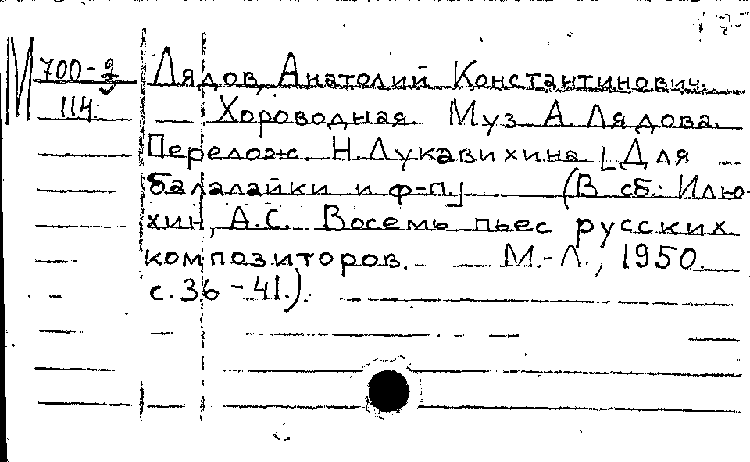 М 700-2 Лядов, Анатолий Константинович.
114 — Хороводная. Муз А. Лядова.
Перелож. Н. Лукавихина [Для
балалайки и ф-п] (В сб.: Илю-
хин, А.С. Восемь пьес русских
композиторов. М.-Л., 1950.
с. 36-41.).